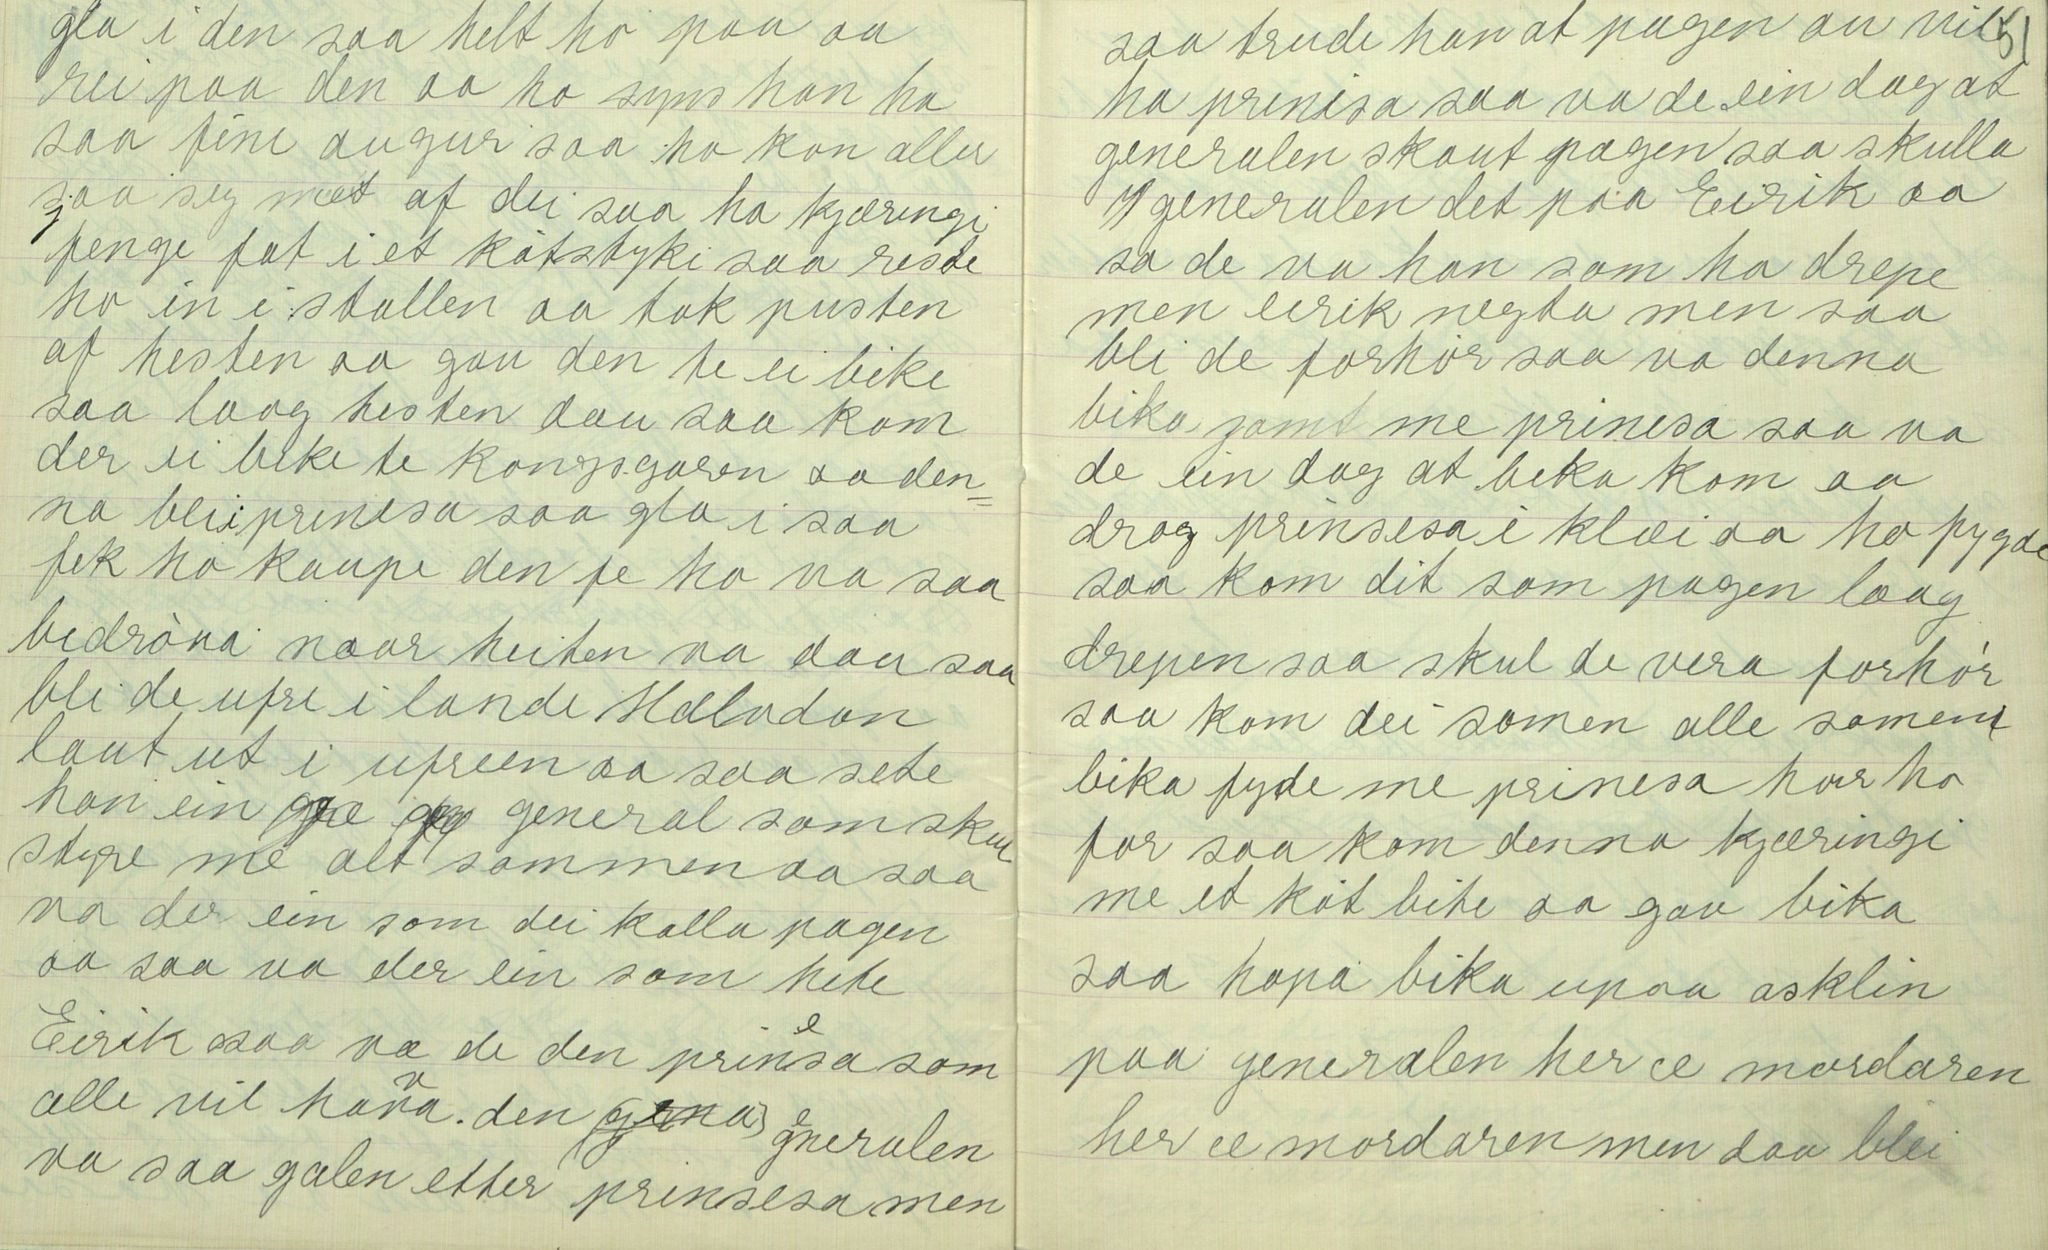 gla i den saa helt ho paa aa
rei paa den aa ho syns han ha
saa fine augur saa ho kan aller
saa seg mæt af dei saa ha kjæringi
penge fat i et kötstyki saa reste
ho in i stallen aa tok pusten
af hesten aa gau den te ei bike
saa laag hesten dau saa kom
der ei bike te kongsgaren aa den=
na blei prinesa saa gla i saa
fek ho kaupe den fe ho va saa
bedröva naar heiten va dau saa
bli de ufre i lande Halvdan
laut ut i ufreen aa saa sete
han ein general som skul
styre me alt sammen aa saa
va der ein som dei kalla pagen
aa saa va der ein som hete
Eirik saa va de den prinsesa som
alle vil hava. den generalen
va saa galen etter prinsesa men
51
saa trude han at pagen au vil
ha prinisa saa va de ein dag at
generalen skaut pagen saa skulla
generalen det paa Eirik aa
sa de va han som ha drepe
men eirik negta men saa
bli de forhör saa va denna
bika jamt me prinesa saa va
de ein dag at beka kom aa
drog prinsesa i klæi aa ho fygde
saa kom dit som pagen laag
drepen saa skul de vera forhör
saa kom dei samen alle samen
bika fyde me prinesa hær ho
for saa kom denna kjæringi
me et köt bite aa gav bika
saa hopa bika upaa asklin
paa generalen her æ mordaren
her æ mordaren men daa blei